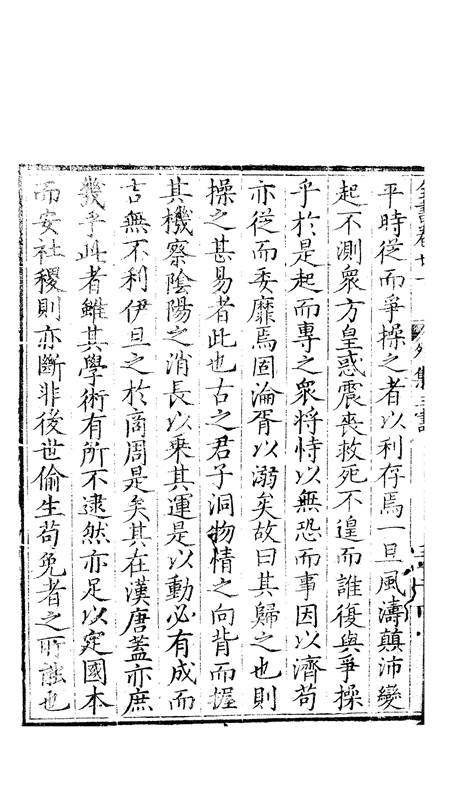 全書卷廿一 外集三 書
平時從而爭操之者以利存焉一旦風濤顛沛變
起不測衆方皇惑震喪救死不遑而誰復與爭操
乎於是起而專之衆將恃以無恐而事因以濟苟
亦從而委靡焉固淪胥以溺矣故曰其歸之也則
操之甚易者此也古之君子洞物情之向背而握
其機察陰陽之消長以乘其運是以動必有成而
吉無不利伊旦之於商周是矣其在漢唐蓋亦庶
幾乎此者雖其學術有所不逮然亦足以定國本
而安社稷則亦斷非後世偷生苟免者之所能也